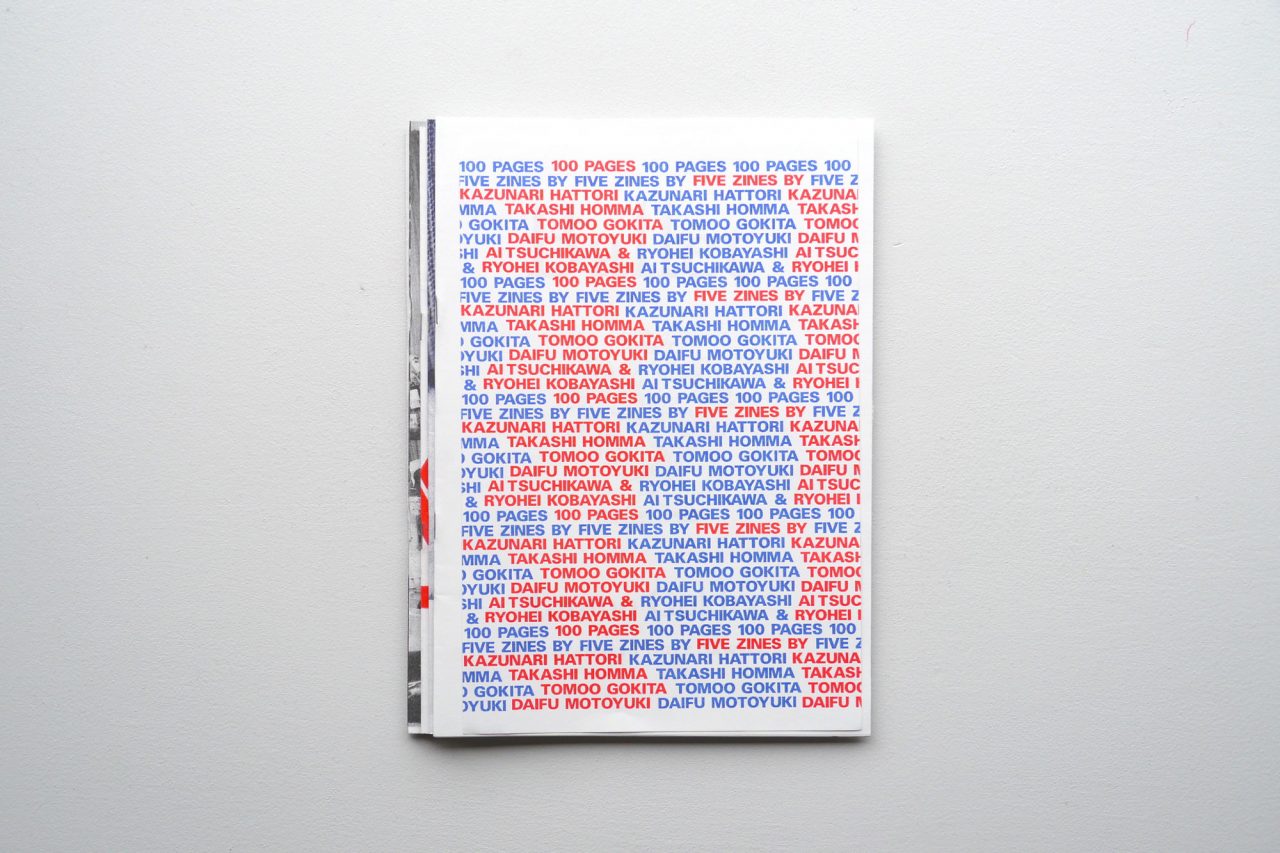 100 PAGES 100 PAGES 100 PAGES 100 PAGES 100
FIVE ZINES BY FIVE ZINES BY FIVE ZINES BY FIVE Z
KAZUNARI HATTORI KAZUNARI HATTORI KAZUNA
MMA TAKASHI HOMMA TAKASHI HOMMA TAKASH
O GOKITA TOMOO GOKITA TOMOO GOKITA TOMOO
OYUKI DAIFU MOTOYUKI DAIFU MOTOYUKI DAIFU M
SHI AI TSUCHIKAWA & RYOHEI KOBAYASHI AI TSUC
& RYOHEI KOBAYASHI AI TSUCHIKAWA & RYOHEI K
100 PAGES 100 PAGES 100 PAGES 100 PAGES 100
FIVE ZINES BY FIVE ZINES BY FIVE ZINES BY FIVE Z
KAZUNARI HATTORI KAZUNARI HATTORI KAZUNA
MMA TAKASHI HOMMA TAKASHI HOMMA TAKASH
O GOKITA TOMOO GOKITA TOMOO GOKITA TOMOO
OYUKI DAIFU MOTOYUKI DAIFU MOTOYUKI DAIFU M
SHI AI TSUCHIKAWA & RYOHEI KOBAYASHI AI TSUC
& RYOHEI KOBAYASHI AI TSUCHIKAWA & RYOHEI K
100 PAGES 100 PAGES 100 PAGES 100 PAGES 100
FIVE ZINES BY FIVE ZINES BY FIVE ZINES BY FIVE Z
KAZUNARI HATTORI KAZUNARI HATTORI KAZUNA
MMA TAKASHI HOMMA TAKASHI HOMMA TAKASH
O GOKITA TOMOO GOKITA TOMOO GOKITA TOMOO
OYUKI DAIFU MOTOYUKI DAIFU MOTOYUKI DAIFU M
SHI AI TSUCHIKAWA & RYOHEI KOBAYASHI AI TSUC
& RYOHEI KOBAYASHI AI TSUCHIKAWA & RYOHEI K
100 PAGES 100 PAGES 100 PAGES 100 PAGES 100
FIVE ZINES BY FIVE ZINES BY FIVE ZINES BY FIVE Z
KAZUNARI HATTORI KAZUNARI HATTORI KAZUNA
MMA TAKASHI HOMMA TAKASHI HOMMA TAKASH
O GOKITA TOMOO GOKITA TOMOO GOKITA TOMOO
OYUKI DAIFU MOTOYUKI DAIFU MOTOYUKI DAIFU M
SHI AI TSUCHIKAWA & RYOHEI KOBAYASHI AI TSUC
& RYOHEI KOBAYASHI AI TSUCHIKAWA & RYOHEI K
100 PAGES 100 PAGES 100 PAGES 100 PAGES 100
FIVE ZINES BY FIVE ZINES BY FIVE ZINES BY FIVE Z
KAZUNARI HATTORI KAZUNARI HATTORI KAZUNA
MMA TAKASHI HOMMA TAKASHI HOMMA TAKASH
O GOKITA TOMOO GOKITA TOMOO GOKITA TOMOO
OYUKI DAIFU MOTOYUKI DAIFU MOTOYUKI DAIFU M